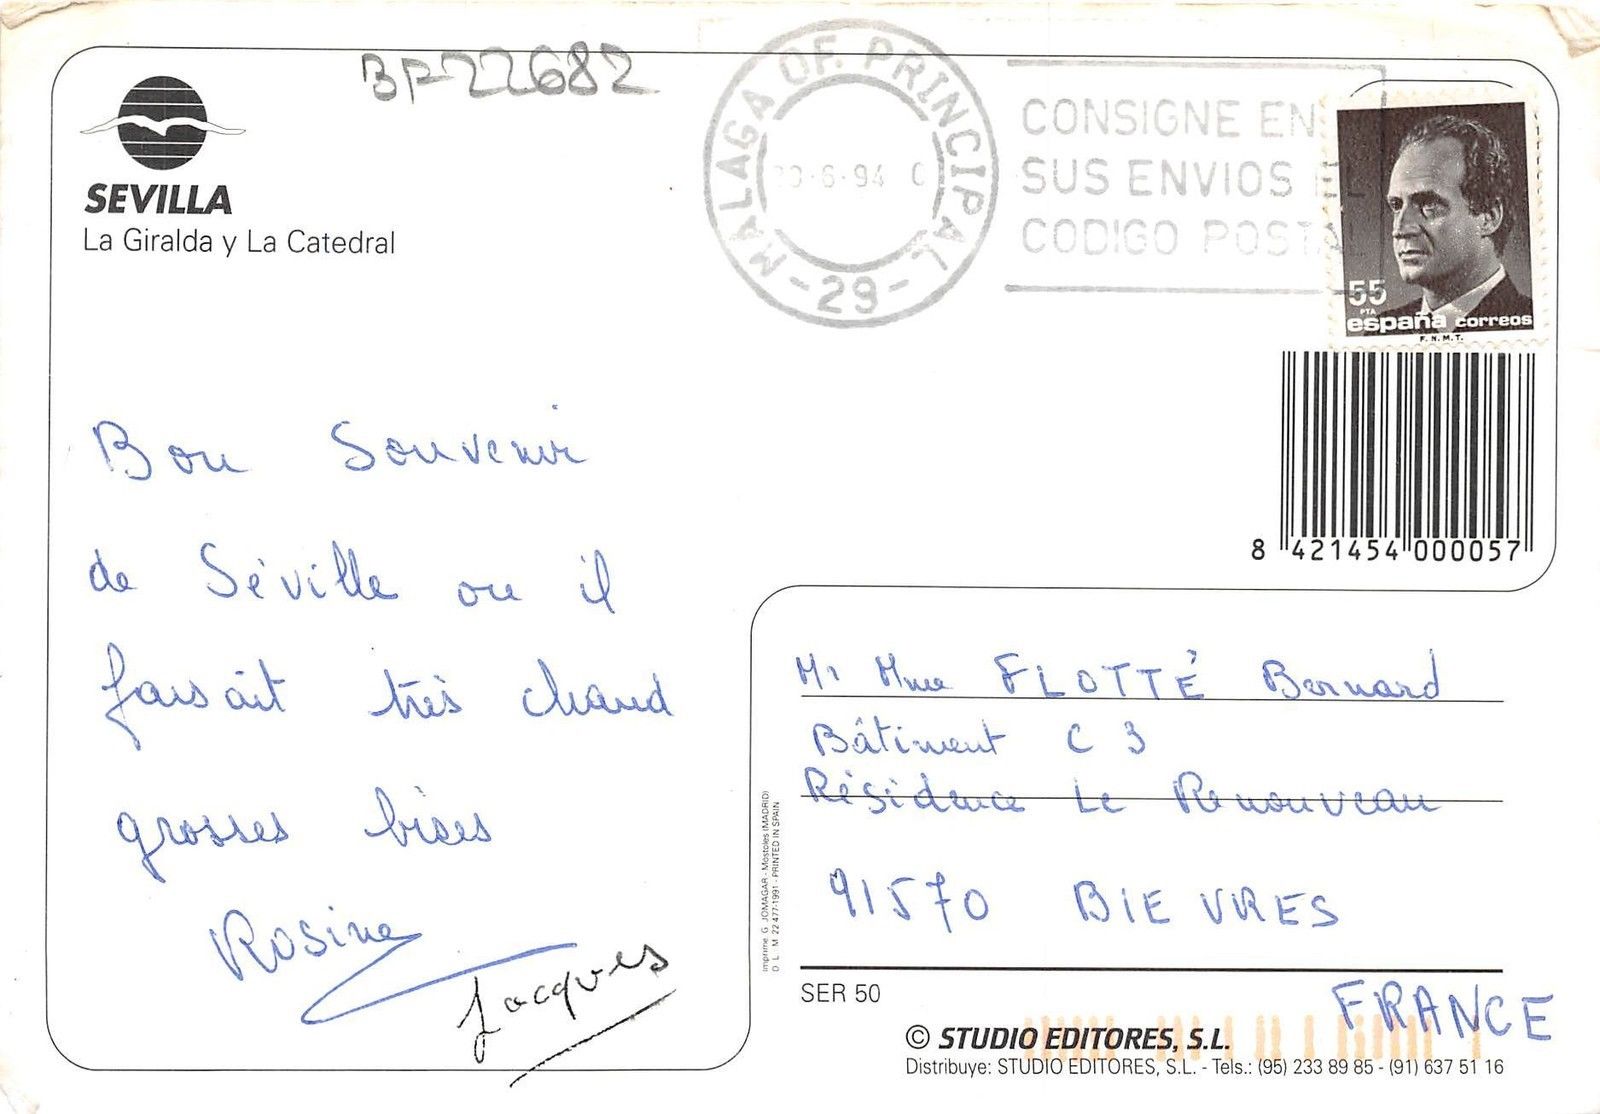 BF22682
SEVILLA
La Giralda y La Catedral
MALAGA OF. PRINCIPAL
-6-94
- 29 -
CONSIGNE EN
SUS ENVIOS EL
CODIGO POSTAL
55
PTA
españa correos
F.N.M.T.
8 421454 000057
Bon Souvenir
de Séville ou il
faisait très chaud
grosses bises
Rosine
Jacques
M. Mme FLOTTÉ Bernard
Bâtiment C 3
Résidence Le Renouveau
91570 BIEVRES
FRANCE
Imprime G. JOMAGAR - Mostoles (MADRID)
D. L. M. 22.477-1991 - PRINTED IN SPAIN
SER 50
© STUDIO EDITORES, S.L.
Distribuye: STUDIO EDITORES, S.L. - Tels.: (95) 233 89 85 - (91) 637 51 16